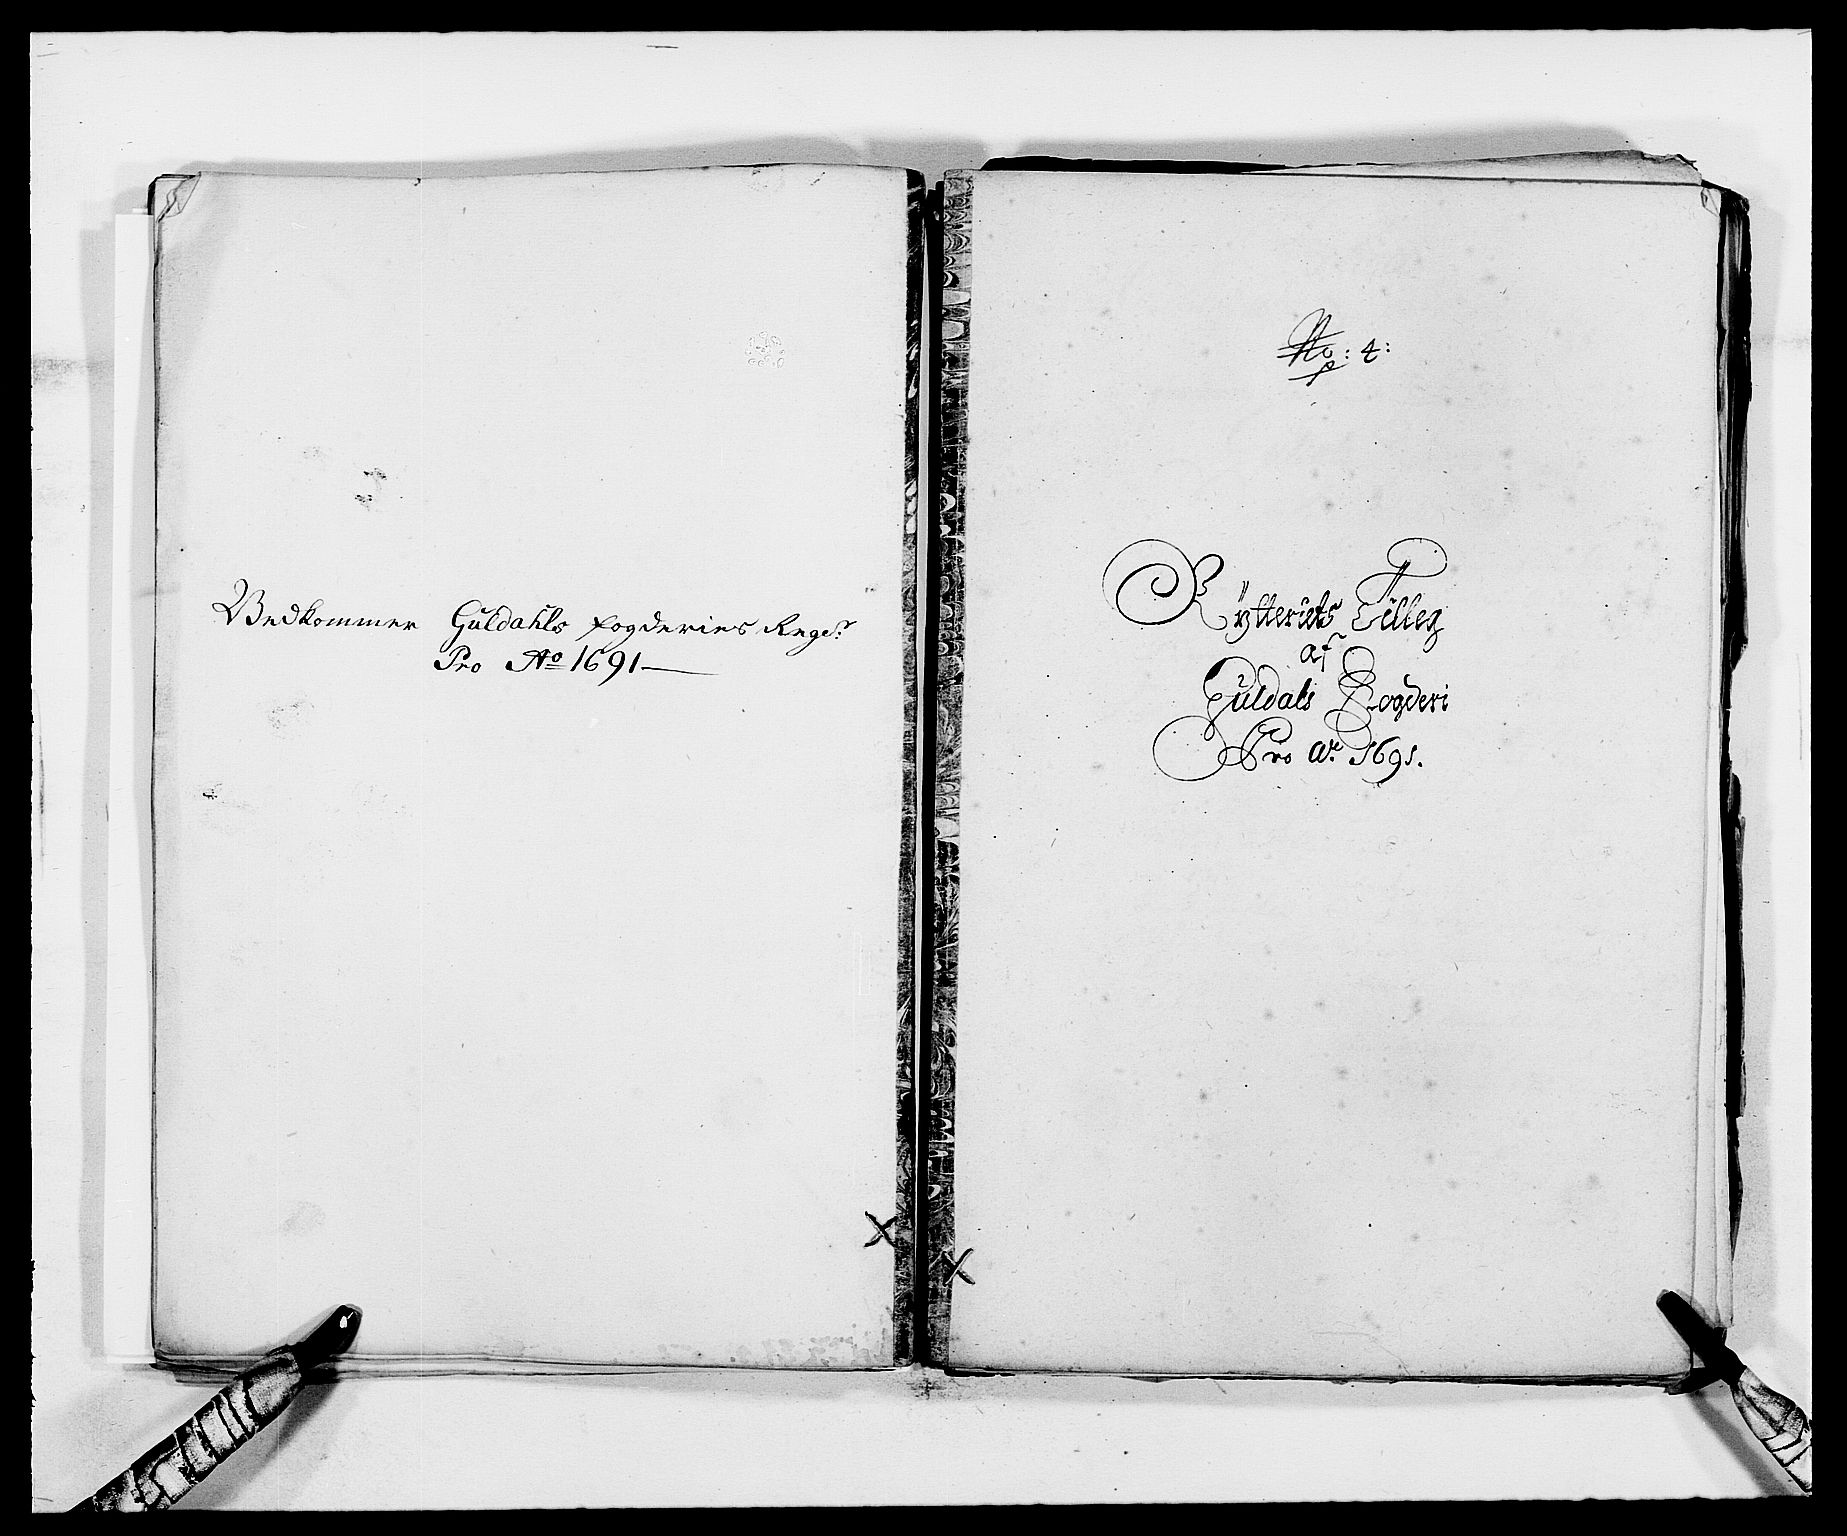 Vedkommer Guldahls fogderies Regs:r
Pro Ao 1691
No: 4:
Rÿtteriets Tilleg
af
Guldals Fogderi
Pro Ao. 1691.